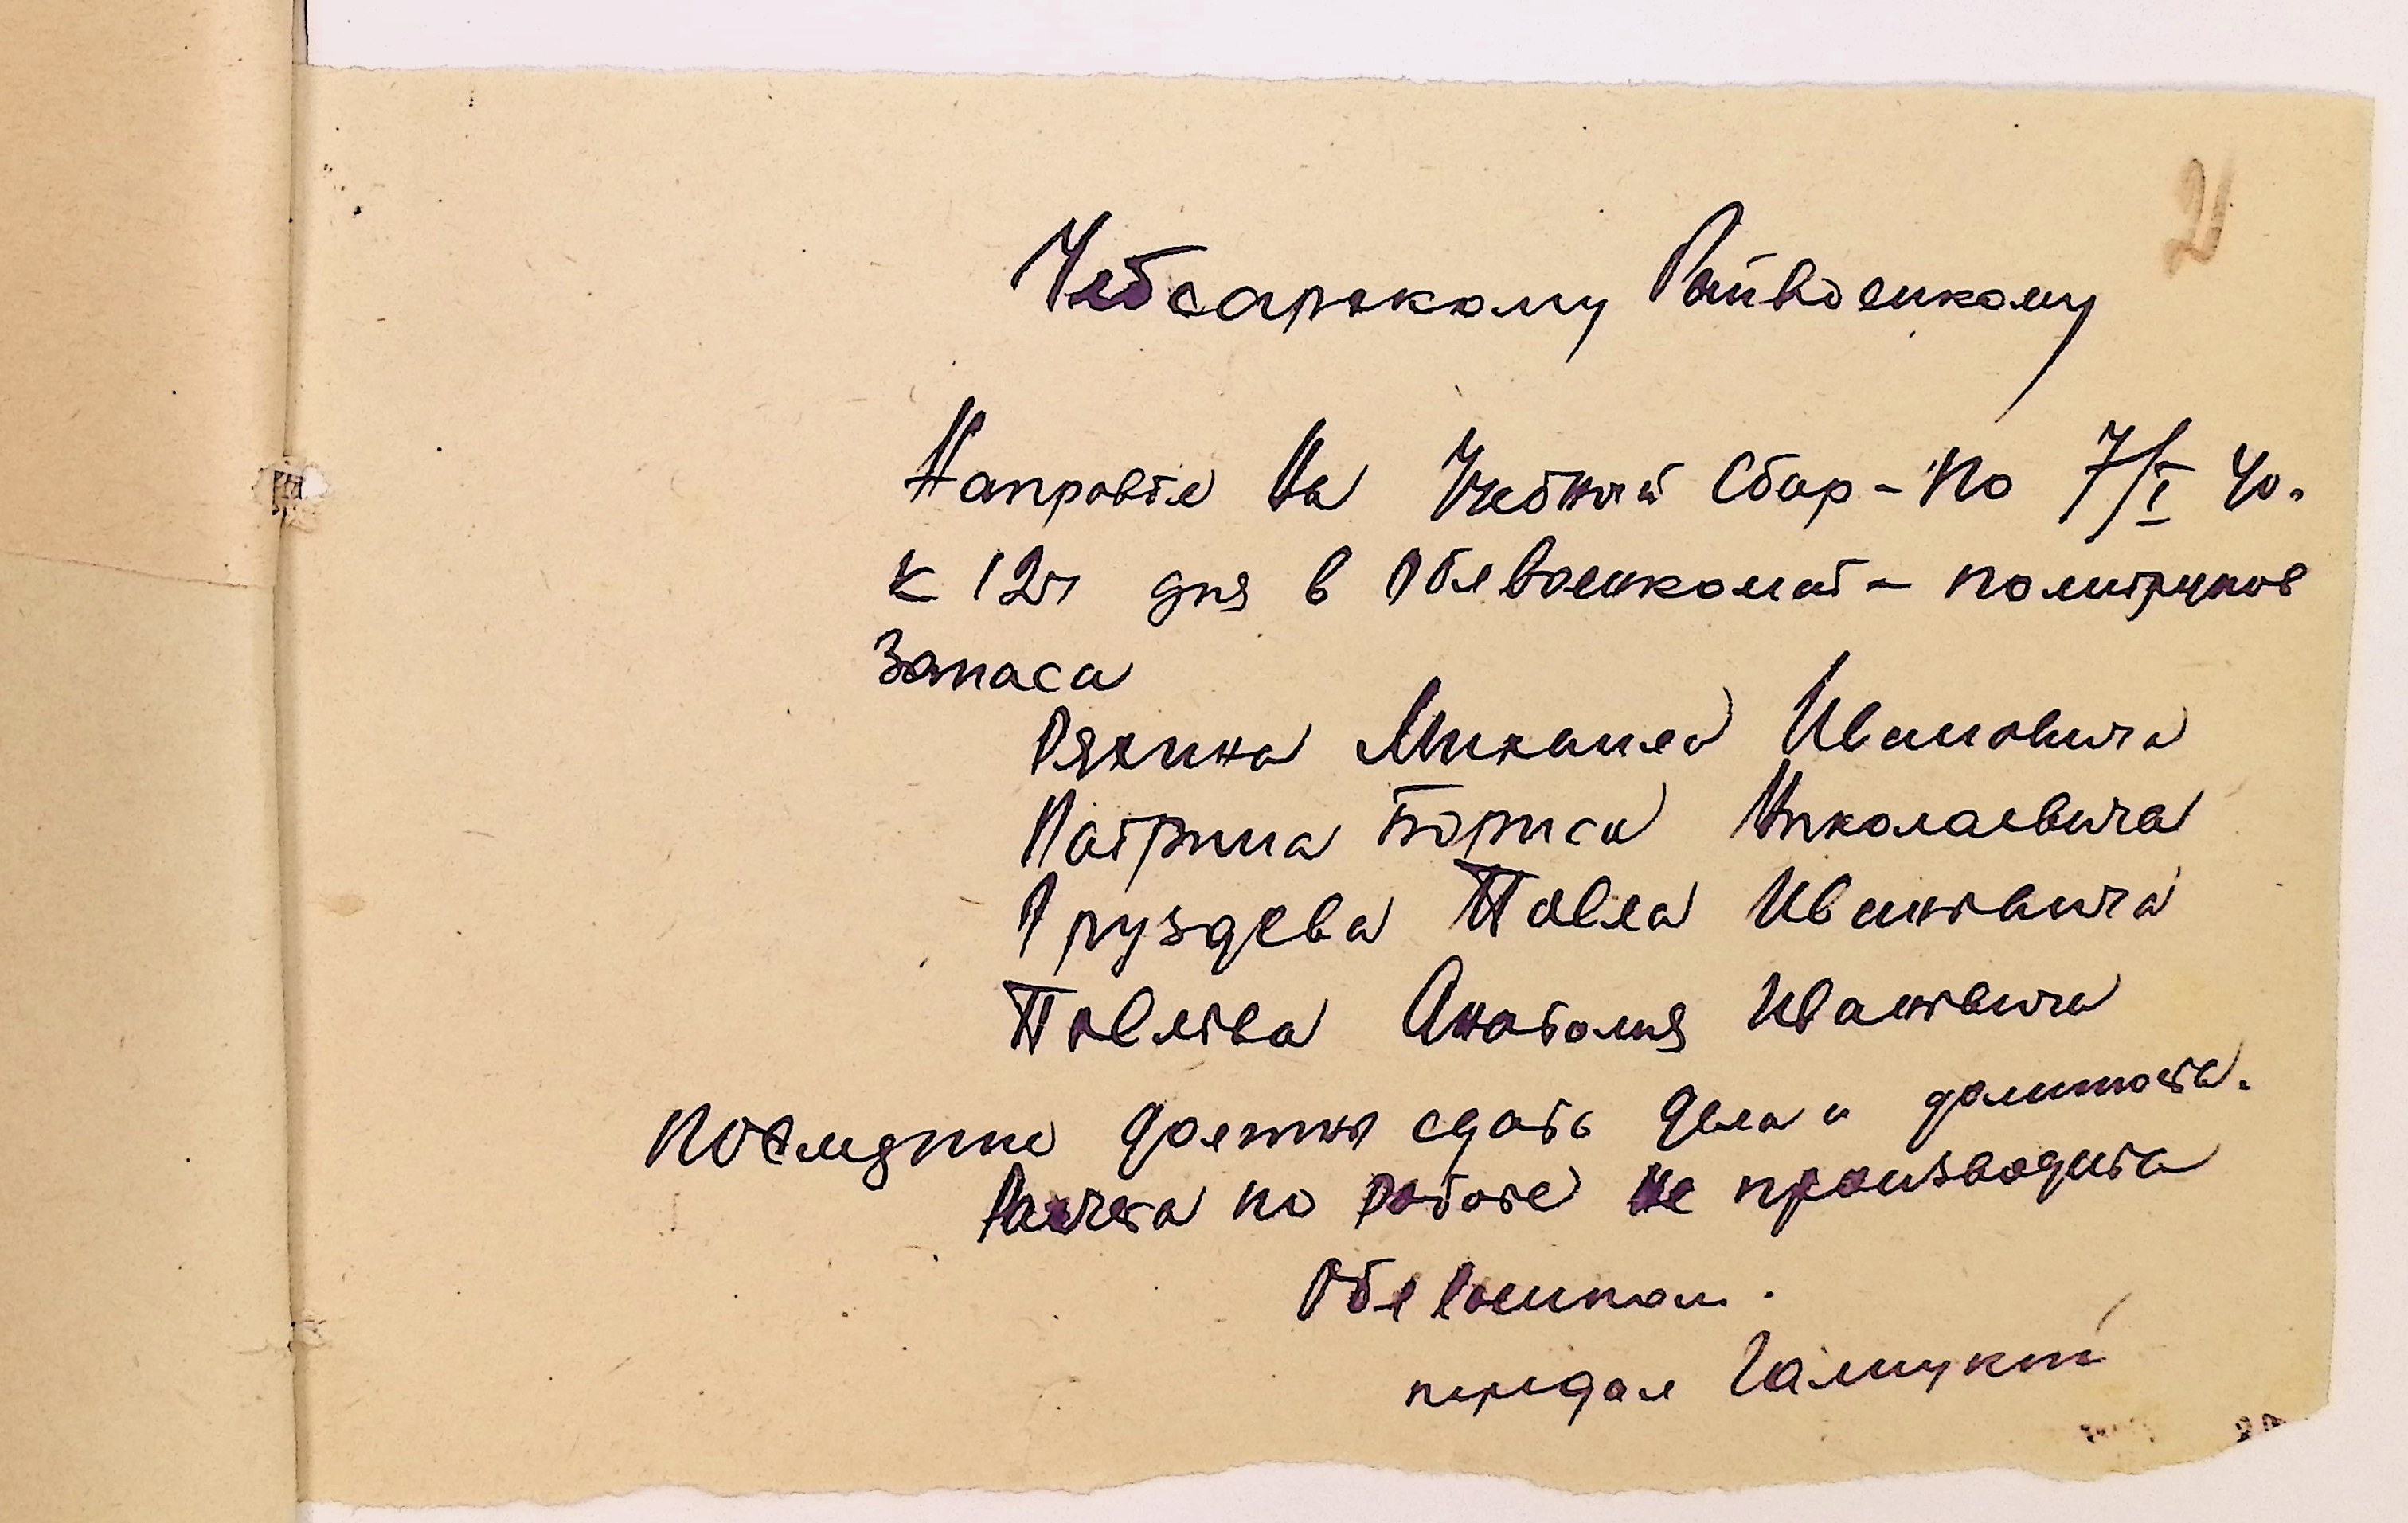 2
Чебсарскому Райвоенкому
Направте На Учебный Сбор - По 7/I 40.
к 12ч дня в Облвоенкомат - политруков
Запаса
Ряхина Михаила Ивановича
Патрина Бориса Николаевича
Груздева Павла Ивановича
Павлова Анатолия Ивановича
Последние должны сдать дела и должность.
Расчета по работе не производить
Облвоенком.
передал